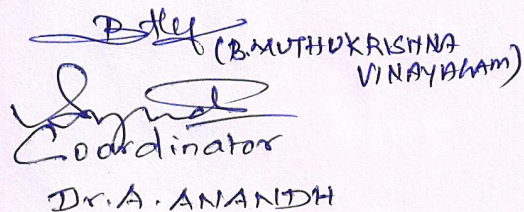 (B.MUTHUKRISHNA
VINAYAHAM)
Coordinator
Dr.A.ANANDH